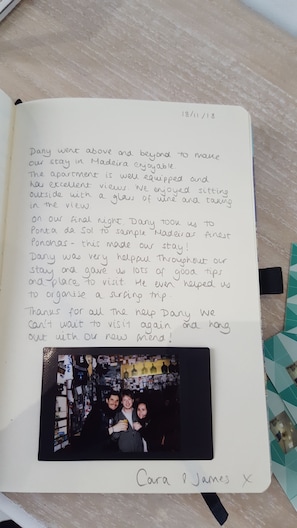 18/11/18
Dany went above and beyond to make
our stay in Madeira enjoyable.
The apartment is well equipped and
has excellent views. We enjoyed sitting
outside with a glass of wine and taking
in the view.
On our final night Dany took us to
Ponta do Sol to sample Madeiras finest
Ponchas - this made our stay!
Dany was very helpful throughout our
stay and gave us lots of good tips
and places to visit. He even helped us
to organise a surfing trip.
Thanks for all the help Dany. We
can't wait to visit again and hang
out with our new friend!
Cara & James X